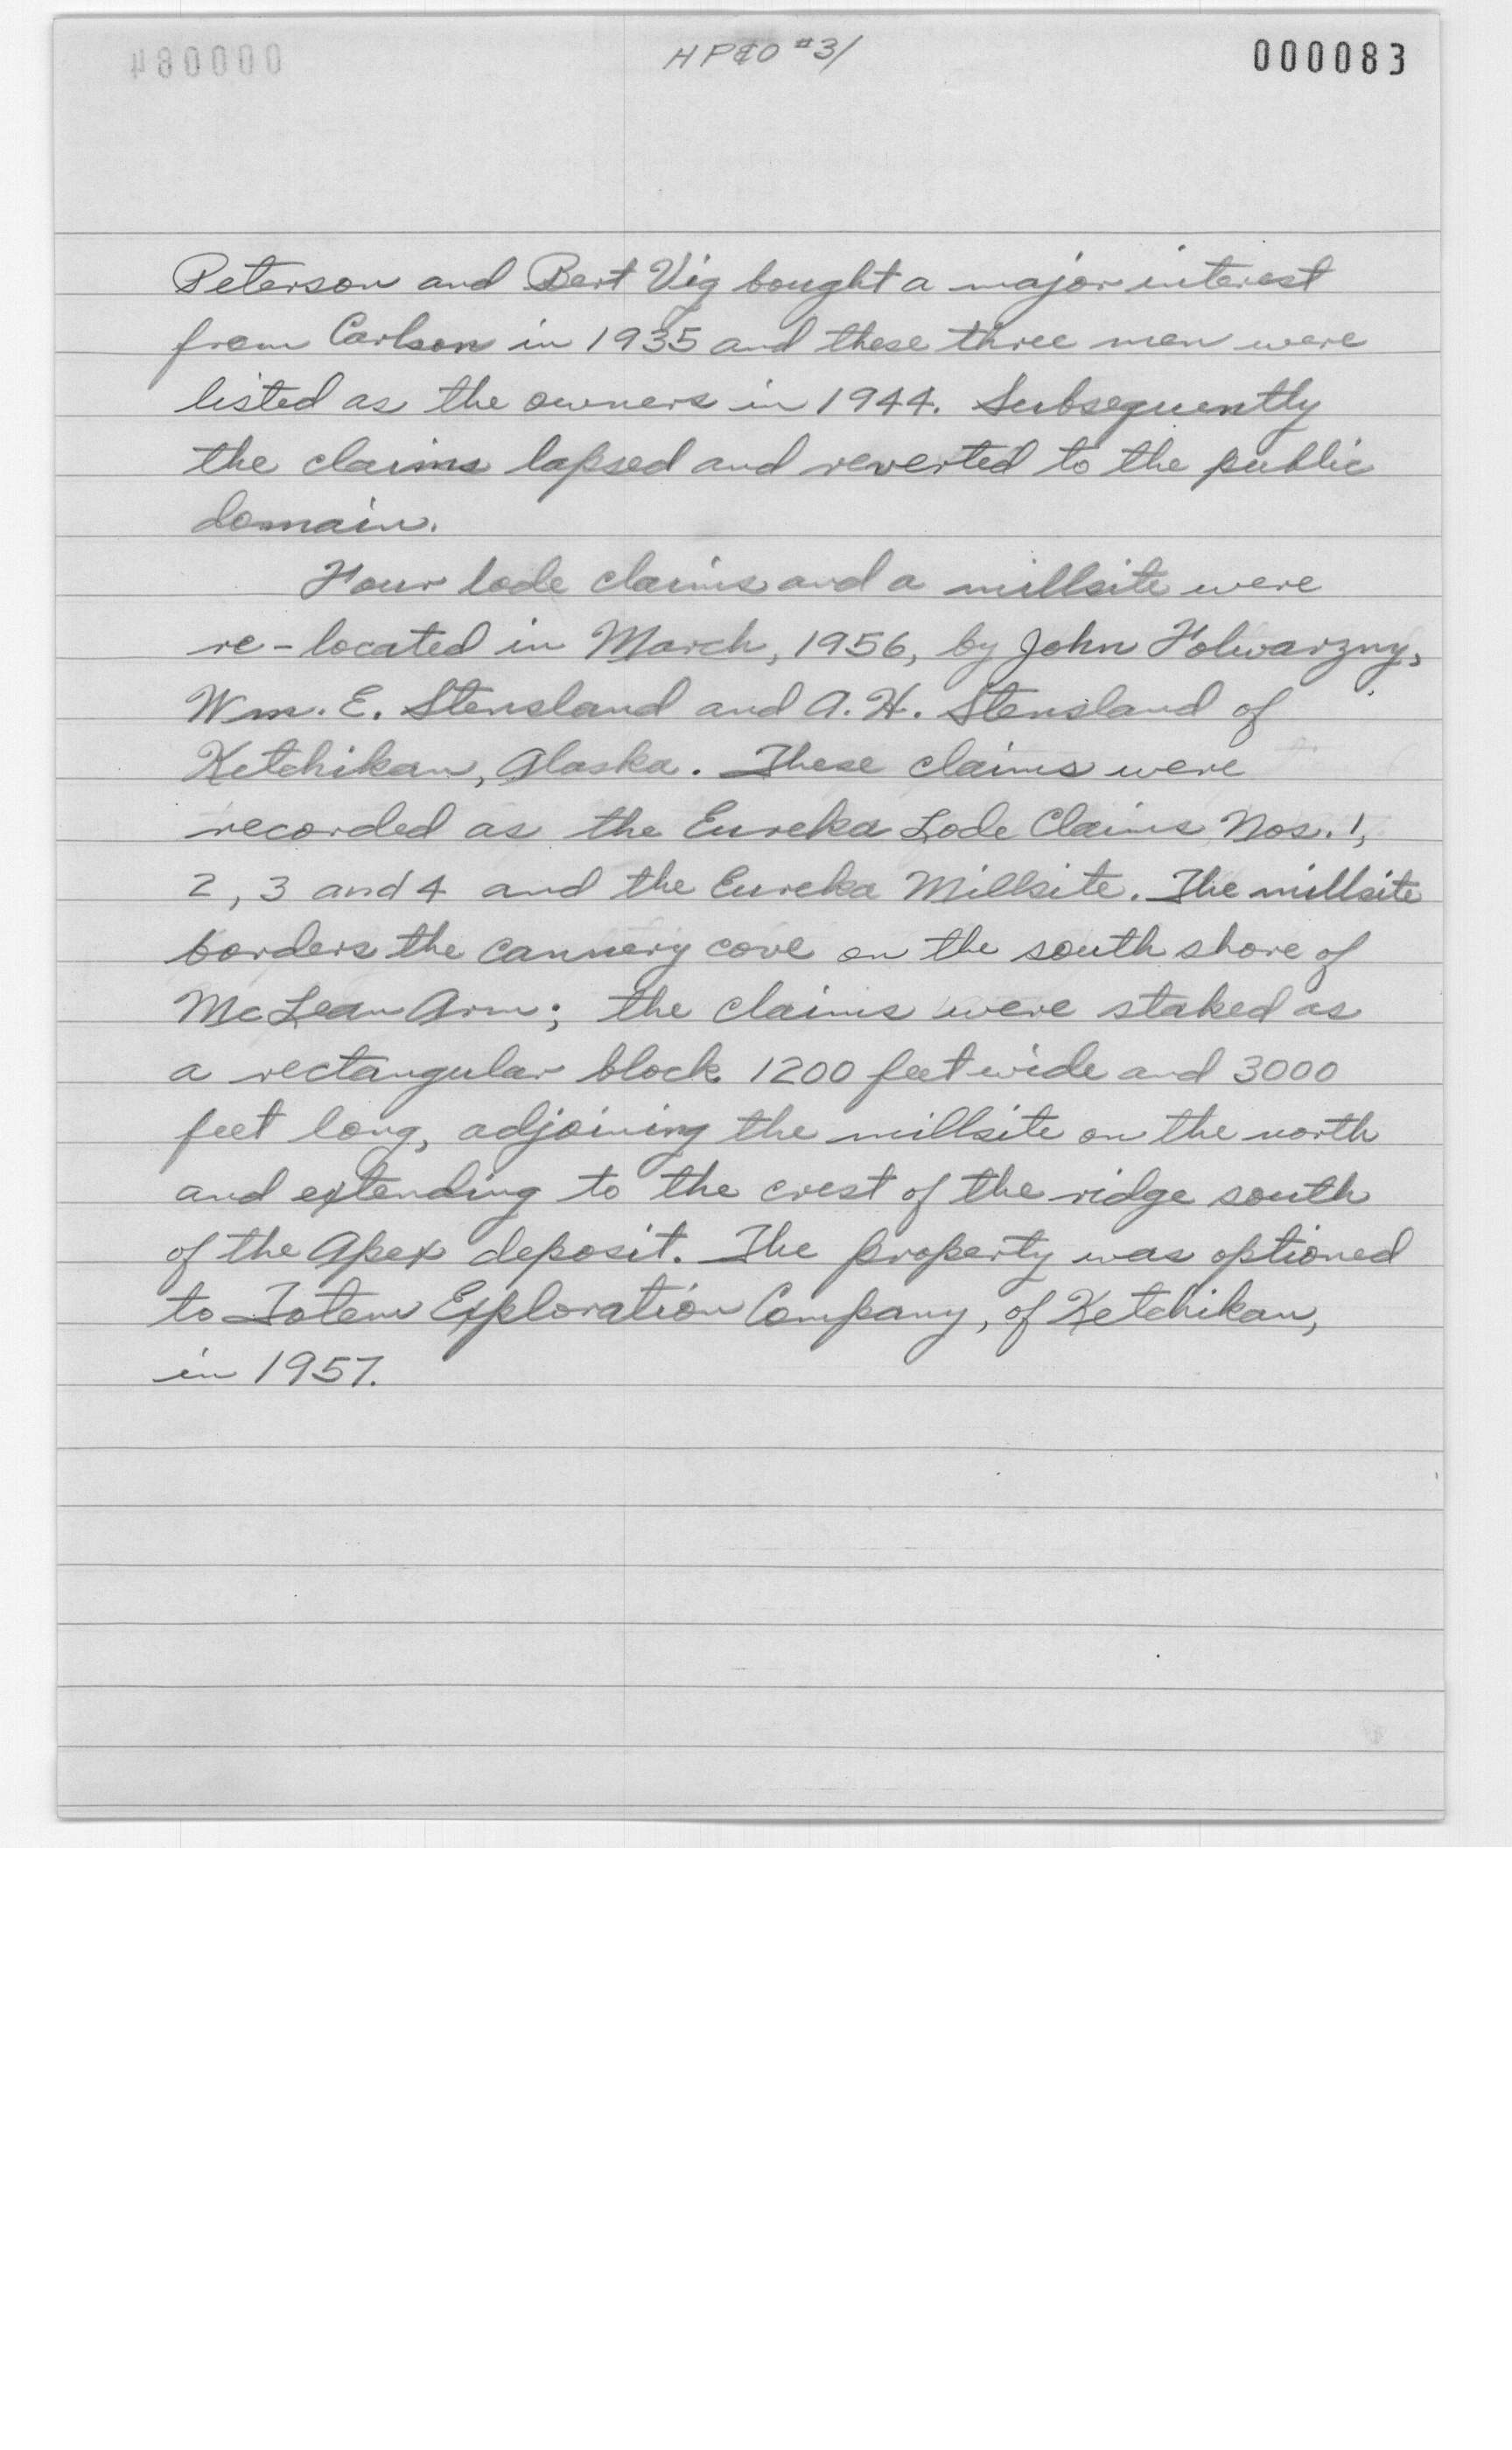 HP&O #31
000083
Peterson and Bert Vig bought a major interest
from Carlson in 1935 and these three men were
listed as the owners in 1944. Subsequently
the claims lapsed and reverted to the public
domain.
Four lode claims and a millsite were
re-located in March, 1956, by John Holwarzny,
Wm. E. Stensland and A. H. Stensland of
Ketchikan, Alaska. These claims were
recorded as the Eureka Lode Claims Nos. 1,
2, 3 and 4 and the Eureka Millsite. The millsite
borders the cannery cove on the south shore of
McLean Arm; the claims were staked as
a rectangular block 1200 feet wide and 3000
feet long, adjoining the millsite on the north
and extending to the crest of the ridge south
of the Apex deposit. The property was optioned
to Totem Exploration Company, of Ketchikan,
in 1957.